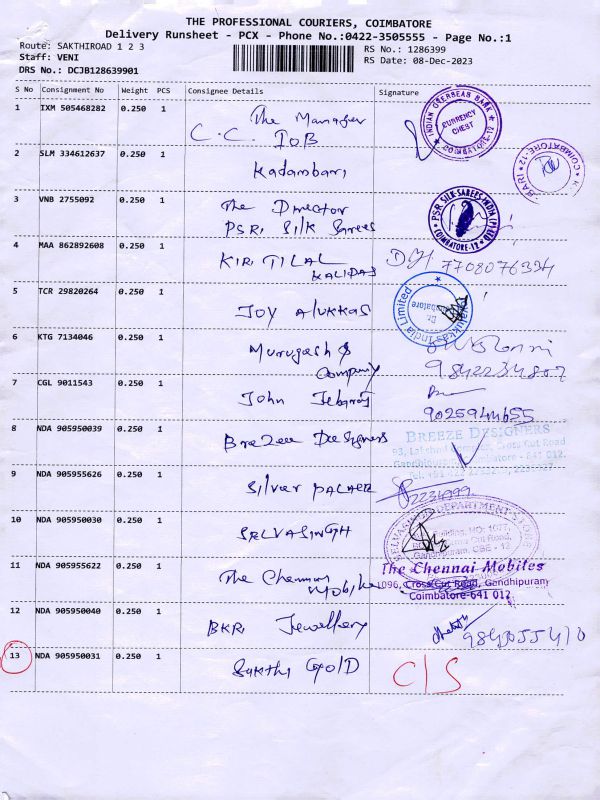 THE PROFESSIONAL COURIERS, COIMBATORE
Delivery Runsheet - PCX - Phone No.:0422-3505555 - Page No.:1
Route: SAKTHIROAD 1 2 3
RS No.: 1286399
Staff: VENI
RS Date: 08-Dec-2023
DRS No.: DCJB128639901
S No Consignment No Weight PCS Consignee Details Signature
1 IXM 505468282 0.250 1 The Manager
C.C. IOB
INDIAN OVERSEAS BANK
CURRENCY CHEST
COIMBATORE-12
2 SLM 334612637 0.250 1 Kadambari
COIMBATORE-12
3 VNB 2755092 0.250 1 The Director
PSR, Silk Sarees
PSR SILK SAREES INDIA (P) LTD
COIMBATORE-12
4 MAA 862892608 0.250 1 KIRITILAL
KALIDAS
7708076394
5 TCR 29820264 0.250 1 Joy Alukkas
Alukkas India Limited
Coimbatore
6 KTG 7134046 0.250 1 Murugash &
Company
7 CGL 9011543 0.250 1 John Jebaraj
8 NDA 905950039 0.250 1 Breeze Designers
BREEZE DESIGNERS
Cross Cut Road
Coimbatore - 641 012.
9 NDA 905955626 0.250 1 Silver PALACE
2234999
10 NDA 905950030 0.250 1 SELVASINGH
DEPARTMENT STORE
Cut Road,
Gandhipuram, CBE - 12
11 NDA 905955622 0.250 1 The Chennai
Mobile
The Chennai Mobiles
1096, Cross Cut Road, Gandhipuram
Coimbatore-641 012
12 NDA 905950040 0.250 1 BKR, Jewellery
13 NDA 905950031 0.250 1 Sakthi GOLD
C/S